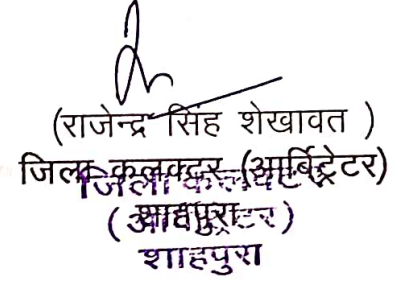 (राजेन्द्र सिंह शेखावत )
जिला कलक्टर (आर्बिट्रेटर)
शाहपुरा
जिला कलक्टर
(आर्बिट्रेटर)
शाहपुरा